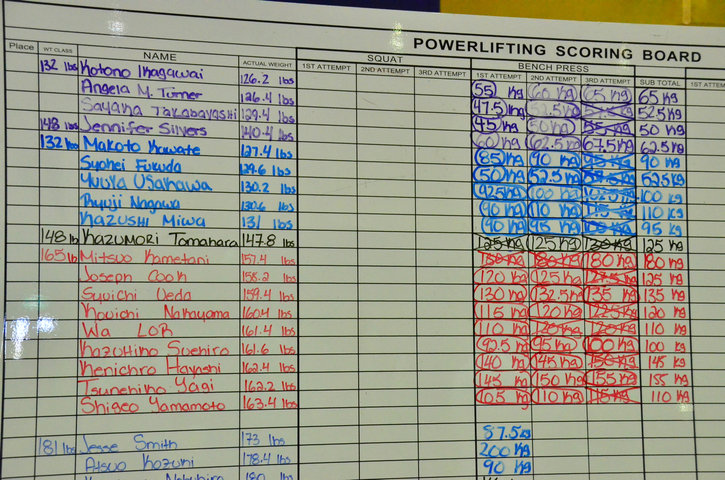 POWERLIFTING SCORING BOARD
SQUAT BENCH PRESS
Place WT CLASS NAME ACTUAL WEIGHT 1ST ATTEMPT 2ND ATTEMPT 3RD ATTEMPT 1ST ATTEMPT 2ND ATTEMPT 3RD ATTEMPT SUB TOTAL 1ST ATTEMPT
132 lbs Kotono Ikagawai 126.2 lbs 55 kg 60 kg 65 kg 65 kg
Angela M. Turner 126.4 lbs 47.5 kg 52.5 kg 52.5 kg
Sayaka Takabayashi 129.4 lbs 45 kg 50 kg 55 kg 50 kg
148 lbs Jennifer Silvers 140.4 lbs 60 kg 62.5 kg 67.5 kg 62.5 kg
132 lbs Makoto Kawate 127.4 lbs 85 kg 90 kg 95 kg 90 kg
Syohei Fukuda 129.6 lbs 50 kg 52.5 kg 52.5 kg
Yuuta Usaikawa 130.2 lbs 92.5 kg 100 kg 102.5 kg 100 kg
Ryuji Nagawa 130.6 lbs 90 kg 110 kg 115 kg 110 kg
Kazushi Miwa 131 lbs 90 kg 95 kg 100 kg 95 kg
148 lb Kazumori Tamahara 147.8 lbs 125 kg 125 kg 130 kg 125 kg
165 lb Mitsuo Kametani 157.4 lbs 180 kg 180 kg 180 kg 180 kg
Joseph Cook 158.2 lbs 120 kg 125 kg 127.5 kg 125 kg
Syuichi Ueda 159.4 lbs 130 kg 132.5 kg 135 kg 135 kg
Kouichi Nakayama 160.4 lbs 115 kg 120 kg 125 kg 120 kg
Wa Lor 161.4 lbs 110 kg 120 kg 120 kg 110 kg
Kazuhiko Suehiro 161.6 lbs 92.5 kg 95 kg 100 kg 100 kg
Kenichro Hayashi 162.4 lbs 140 kg 145 kg 150 kg 145 kg
Tsunehiko Yagi 162.2 lbs 145 kg 150 kg 155 kg 155 kg
Shigeo Yamamoto 163.4 lbs 105 kg 110 kg 115 kg 110 kg
87.5 kg
181 lbs Jesse Smith 173 lbs 200 kg
Atsuo Kozuni 178.4 lbs 90 kg
180 lbs